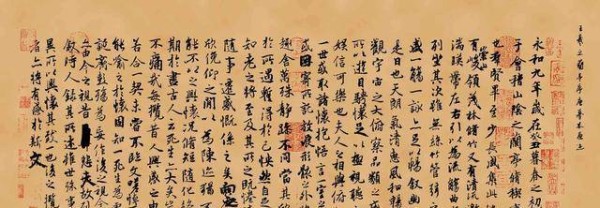 永和九年歲在癸丑暮春之初
于會稽山陰之蘭亭脩稧
也群賢畢至少長咸集此
有崇山峻領茂林脩竹又有清流
湍暎帶左右引以為流觴曲
列坐其次雖無絲竹管弦
盛一觴一詠亦足以暢敘
是日也天朗氣清惠風和暢
觀宇宙之大俯察品類之
所以遊目騁懷足以極
娛信可樂也夫人之相與俯
一世或取諸懷抱悟言一室之
或因寄所託放浪形骸之外
趣舍萬殊靜躁不同當其
於所遇暫得於己怏然自
知老之將至及其所之既
隨事遷感慨係之矣向之
欣俛仰之閒以為陳迹猶
能不以之興懷況脩短隨化
期於盡古人云死生亦大矣
不痛哉每攬昔人興感之
若合一契未嘗不臨文嗟悼
能喻之於懷固知一死生為
誕齊彭殤為妄作後之視
亦由今之視昔悲夫故
敘時人錄其所述雖世殊事
異所以興懷其致一也後之攬
者亦將有感於斯文